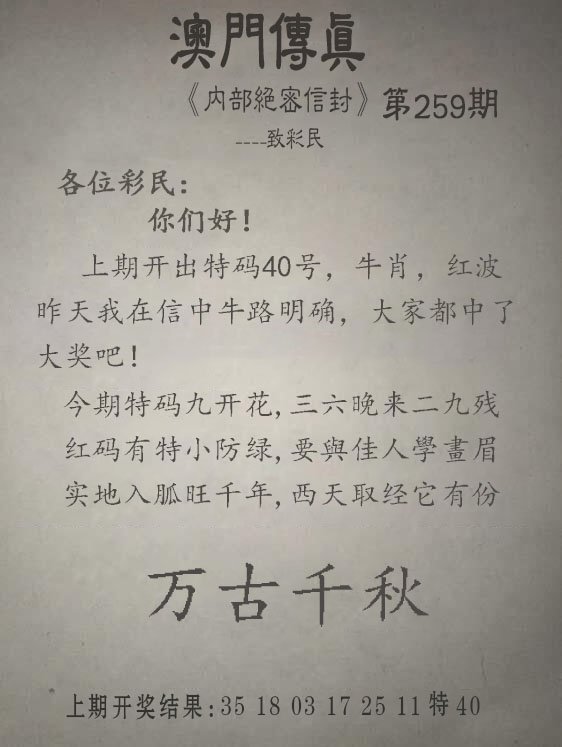 澳門傳眞
《内部絕密信封》第259期
----致彩民
各位彩民:
你们好!
上期开出特码40号,牛肖,红波
昨天我在信中牛路明确,大家都中了
大奖吧!
今期特码九开花,三六晚来二九残
红码有特小防绿,要與佳人學畫眉
实地入胍旺千年,西天取经它有份
万古千秋
上期开奖结果:35 18 03 17 25 11 特 40